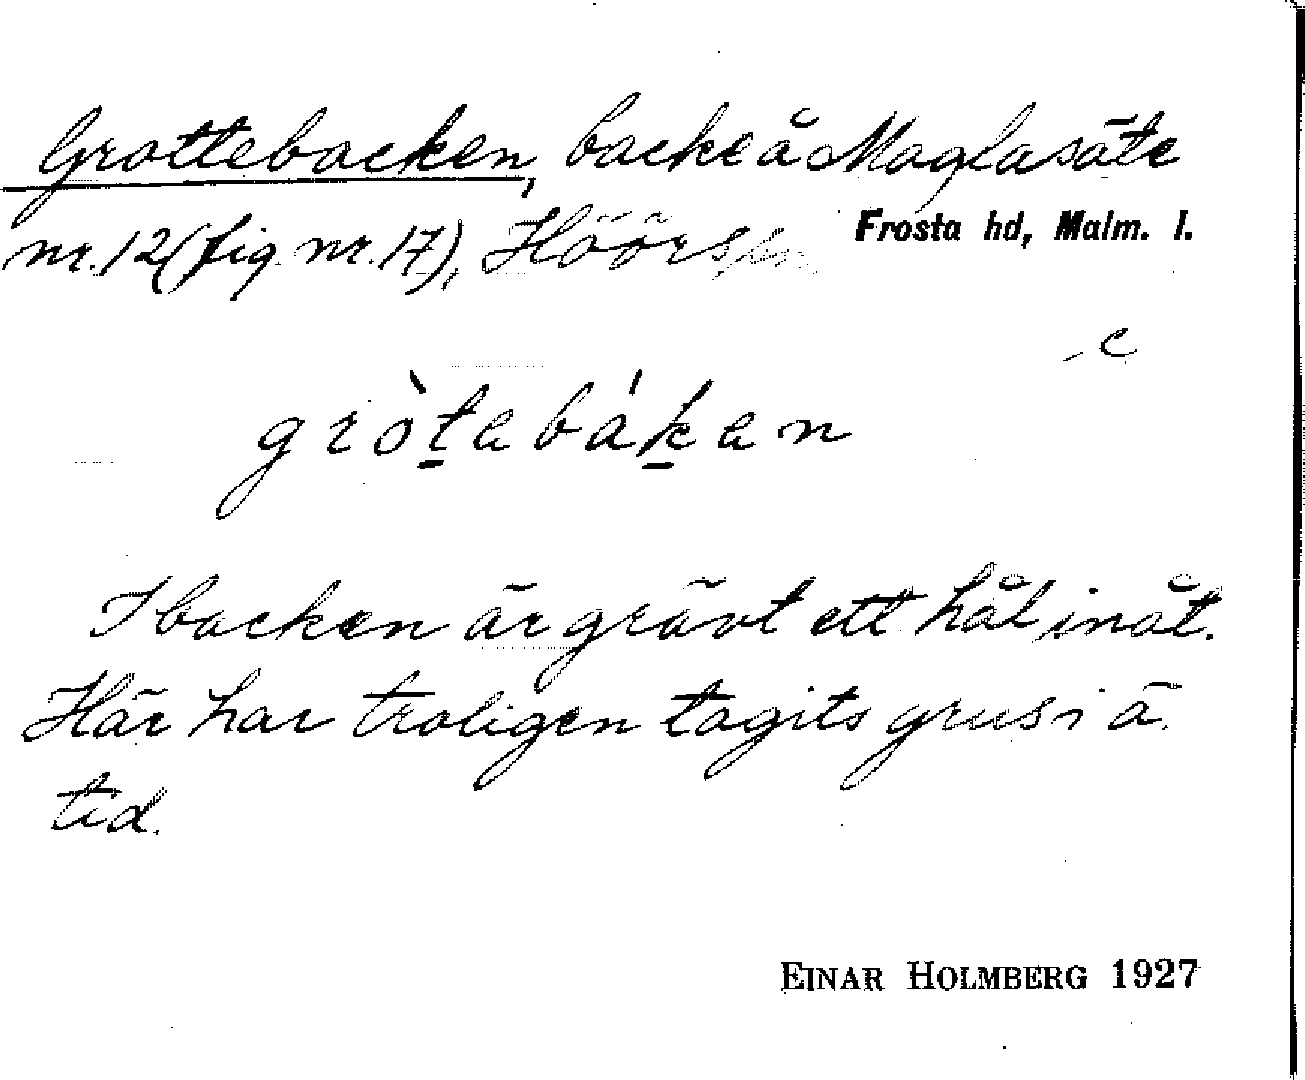 Grottebacken, backe å Maglasäte
nr. 12 (fig nr. 17), Höörs sn Frosta hd, Malm. l.
c
gròtabákan
I backen är grävt ett hål inåt.
Här har troligen tagits grus i ä.
tid.
EINAR HOLMBERG 1927